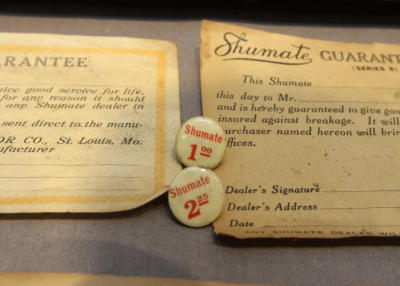 ARANTEE
ive good service for life,
for any reason it should
any Shumate dealer in
sent direct to the manu-
OR CO., St. Louis, Mo.
nufacturer
Shumate
1.00
Shumate
2.25
Shumate GUARANT
(SERIES
This Shumate
this day to Mr.
and is hereby guaranteed to give goo
insured against breakage. It will
purchaser named hereon will brin
offices.
Dealer's Signature
Dealer's Address
Date
ANY SHUMATE DEALER WIL